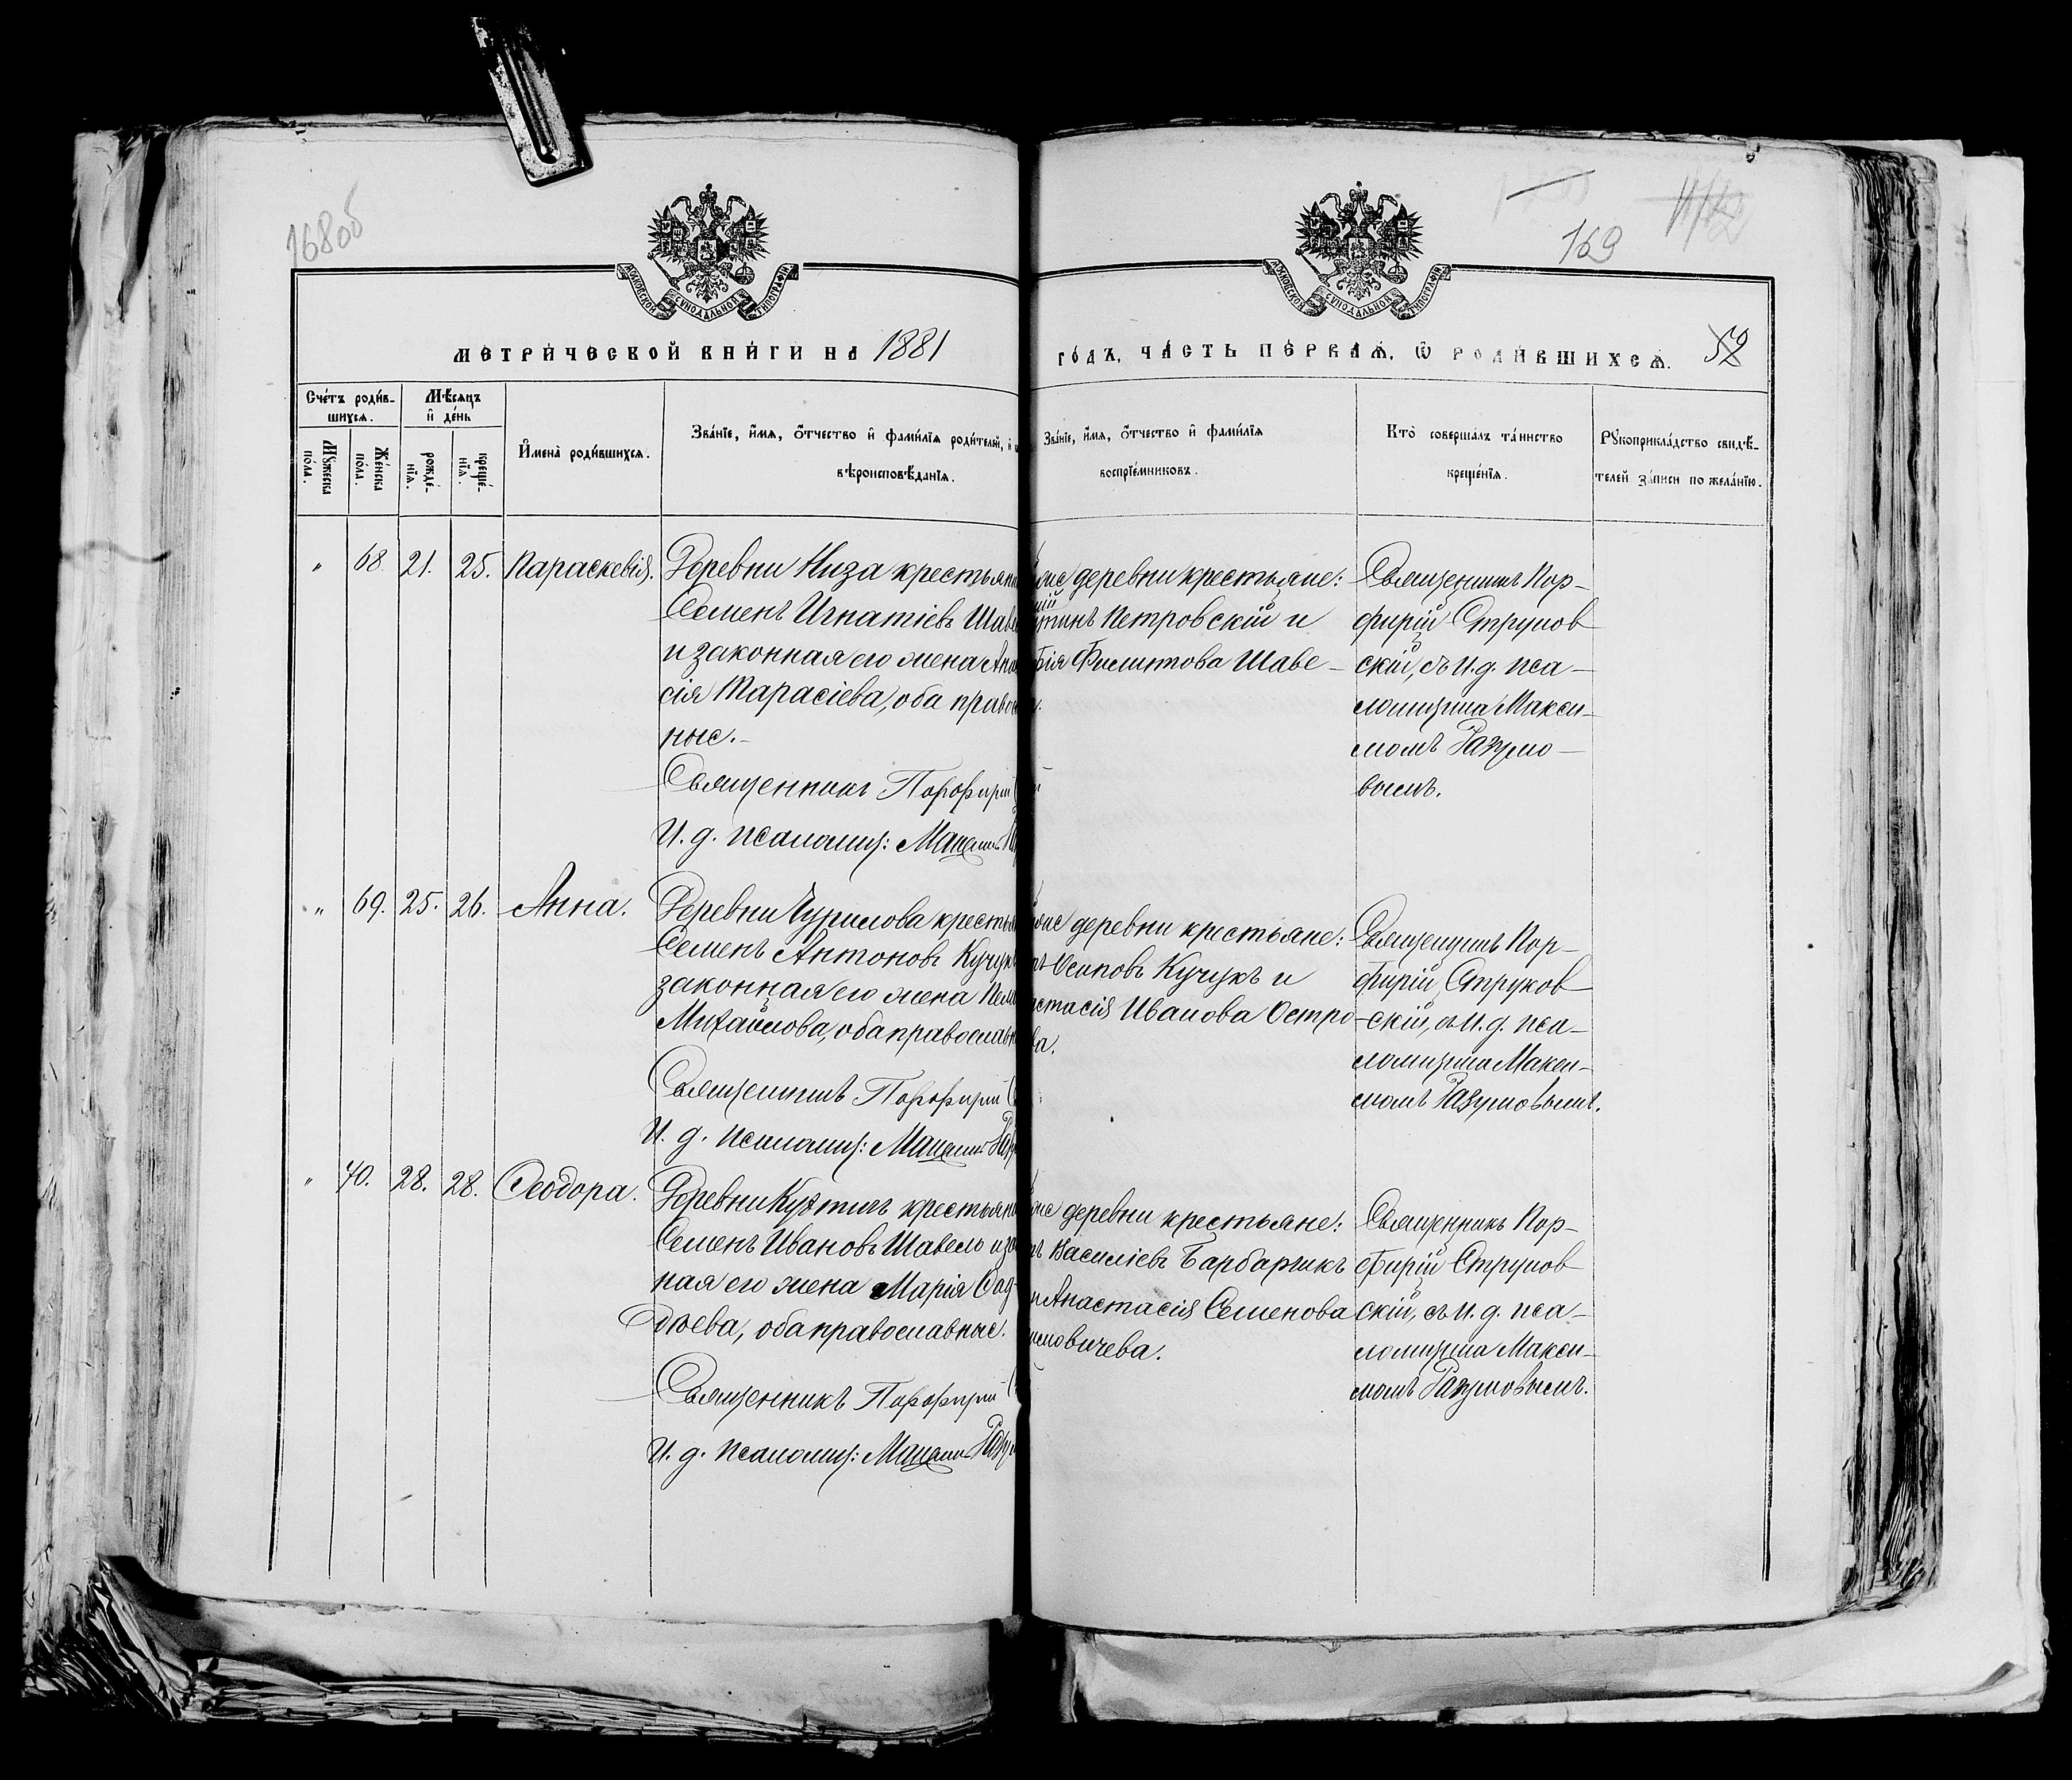 168об
169
МОСКОВСКОЙ СѴНОДАЛЬНОЙ ТИПОГРАФІИ
МОСКОВСКОЙ СѴНОДАЛЬНОЙ ТИПОГРАФІИ
МЕТРИ́ЧЕСКОЙ КНИ́ГИ НА 1881
ГО́ДЪ, ЧА́СТЬ ПЕ́РВАѦ, Ѡ РОДИ́ВШИХСѦ.
Сче́тъ роди́в-
шихся.
Мѣ́сяцъ
и҆ де́нь
Мꙋ́жеска
по́ла.
Же́нска
по́ла.
рожде́-
нїя.
креще́-
нїя.
И҆мена̀ роди́вшихся.
Зва́нїе, и҆́мя, ѻ҆́тчество и҆ фами́лїя роди́телей, и҆
вѣроисповѣ́данїя.
Зва́нїе, и҆́мя, ѻ҆́тчество и҆ фами́лїя
воспрїе́мниковъ.
Кто̀ соверша́лъ та́инство
креще́нїя.
Рꙋкоприкла́дство свидѣ́-
телей за́писи по жела́нїю.
" 68. 21. 25. Параскевія.
Деревни Низа крестьян
Семенъ Игнатіевъ Шаве
и законная его жена Ана
сія Тарасіева, оба правос
ные.
Священникъ Порфирій
И. д. псаломщ: Максимъ
деревни крестьяне:
Петровскій и
Филиппова Шаве-
Священникъ Пор-
фирій Струков
скій, съ И. д. пса-
ломщика Макси-
момъ Разумо-
вымъ.
" 69. 25. 26. Анна.
Деревни Чурилова крестья
Семенъ Антоновъ Кучук
законная его жена Пела
Михайлова, оба православн
Священникъ Порфирій
И. д. псаломщ: Максимъ Раз
деревни крестьяне:
Осиповъ Кучукъ и
астасія Иванова Остро-
ва.
Священникъ Пор-
фирій Струков
скій, съ И. д. пса-
ломщика Макси-
момъ Разумовымъ.
" 70. 28. 28. Ѳеодора.
Деревни Кухтичъ крестьян
Семенъ Ивановъ Шавель и за
ная его жена Марія Ѳад-
дѣева, оба православные.
Священникъ Порфирій
И. д. псаломщ: Максимъ Разу
деревни крестьяне:
Василіевъ Барбарчикъ
и Анастасія Семенова
мовичева.
Священникъ Пор-
фирій Струков
скій, съ И. д. пса-
ломщика Макси-
момъ Разумовымъ.